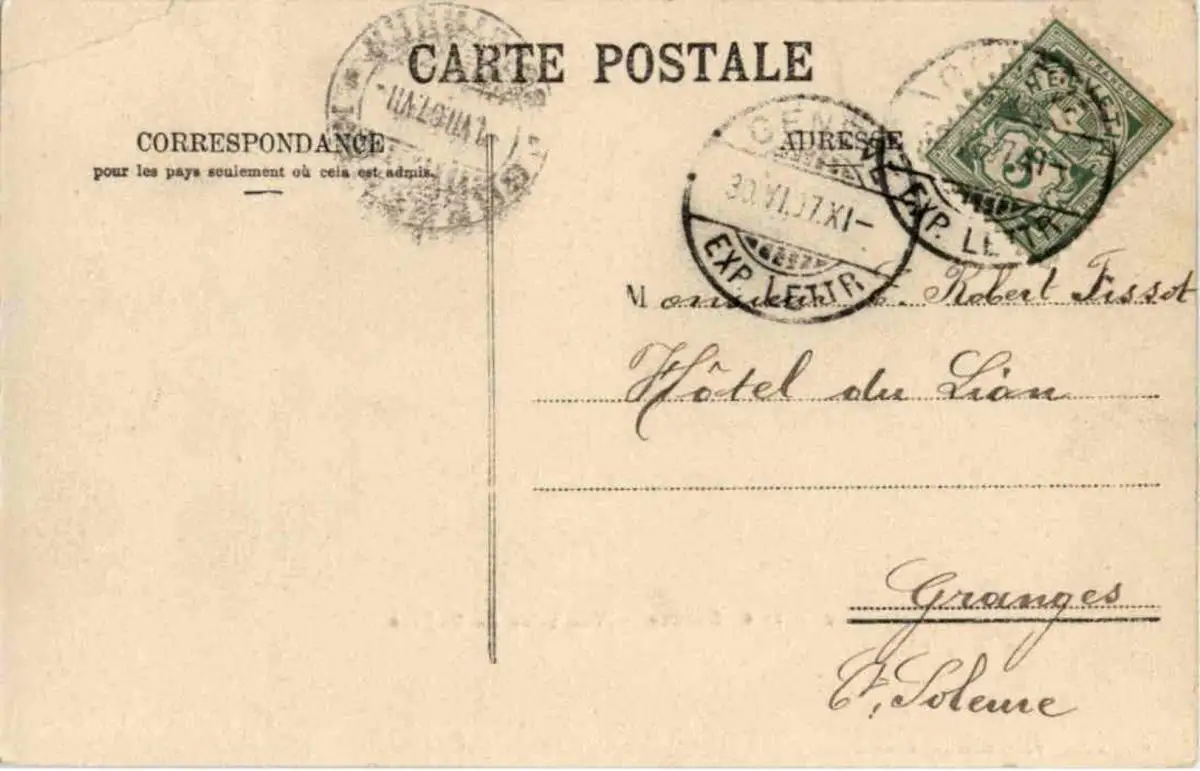 CARTE POSTALE
CORRESPONDANCE
pour les pays seulement où cela est admis.
ADRESSE
HELVETIA
5
GENÈVE
30.VI.07.XI-
EXP. LETTR
EXP. LETTR
Monsieur E. Robert Tissot
Hôtel du Lion
Granges
Ct. Soleure